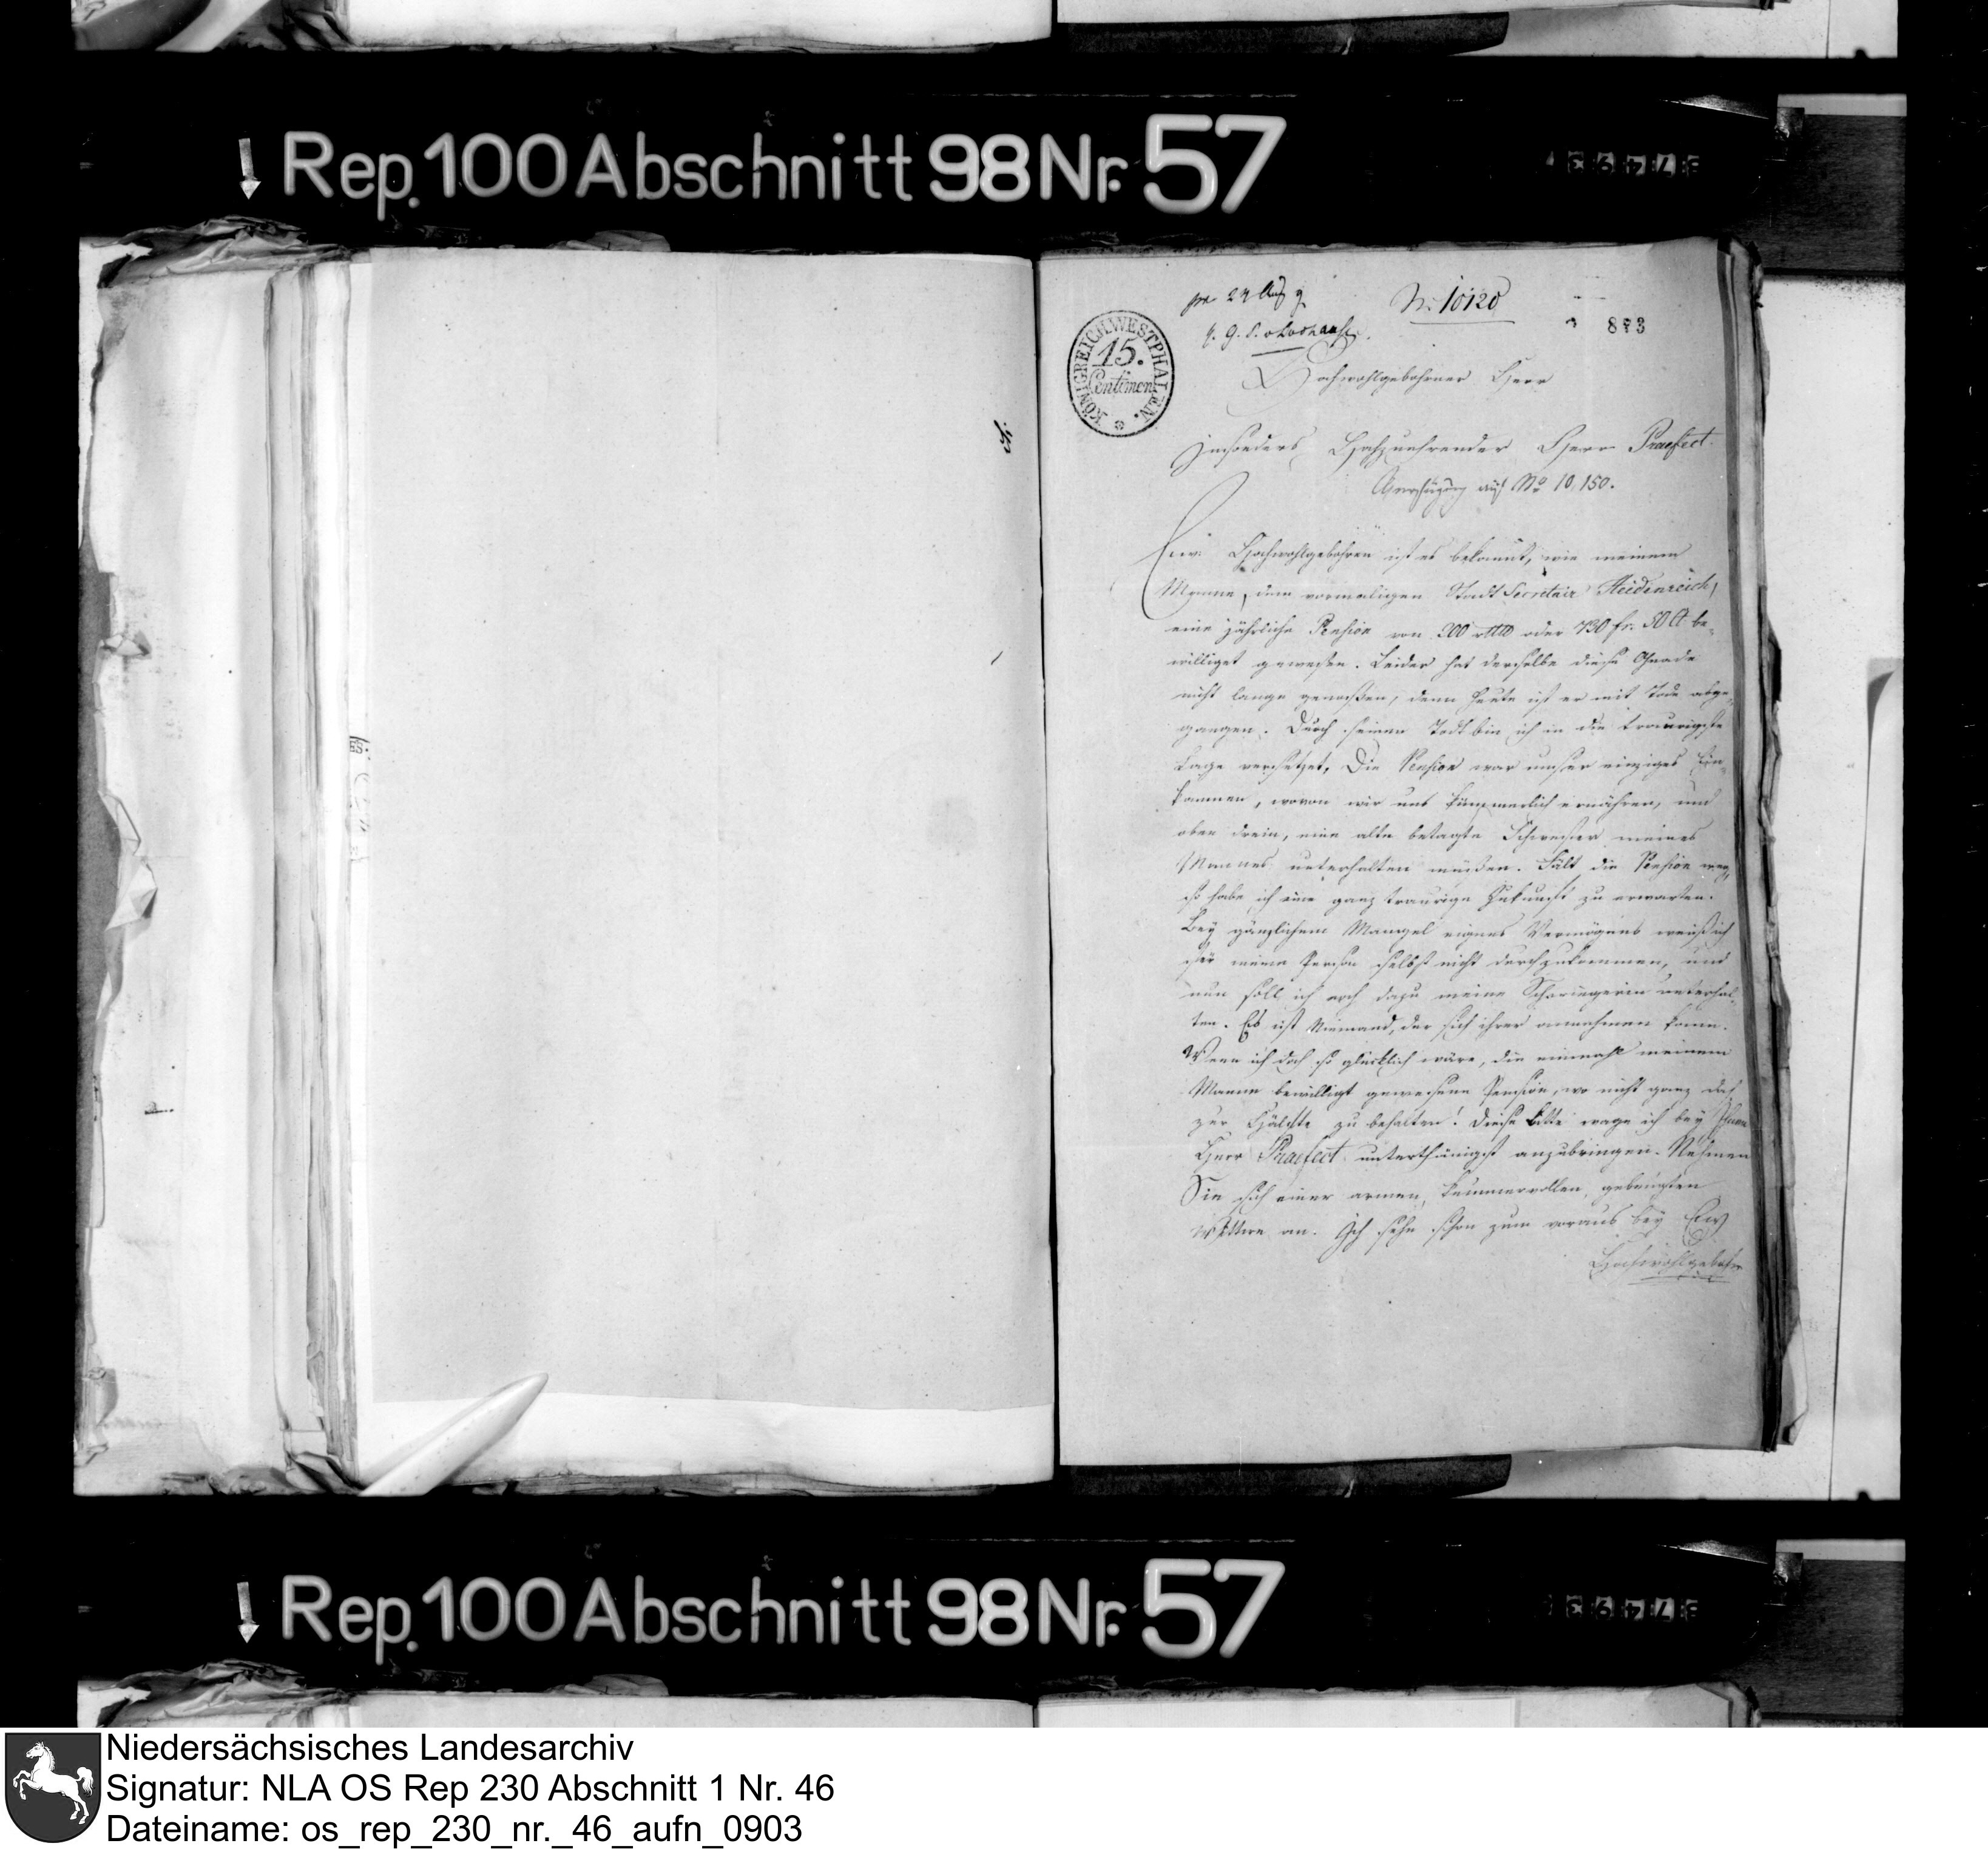 Rep. 100 Abschnitt 98 Nr. 57
No 10120
873
KÖNIGREICH WESTPHALEN.
15.
Centimen
Hochwohlgebohrner Herr
Insonders Hochzuehrender Herr Praefect.
auf No 10,150.
Euw. Hochwohlgebohren ist es bekannt, wie meinem
Manne, dem vormaligen Stadt Secretair Heidenreich,
eine jährliche Pension von 200 oder 730 fr. 50 Ct be-
williget gewesen. Leider hat derselbe diese Gnade
nicht lange genossen, denn heute ist er mit Tode abge-
gangen. Durch seinen Todt bin ich in die traurigste
Lage versetzet. Die Pension war unser einziges Ein-
kommen, wovon wir uns kümmerlich ernähren, und
oben drein, eine alte betagte Schwester meines
Mannes unterhalten müßen. Fält die Pension weg,
so habe ich eine ganz traurige Zukunft zu erwarten.
Bey gänzlichem Mangel eignes Vermögens weiß ich
für meine Person selbst nicht durchzukommen, und
nun soll ich noch dazu meine Schwiegerin unterhal-
ten. Es ist Niemand, der sich ihrer annehmen kann.
Wenn ich doch so glücklich wäre, die einmahl meinem
Manne bewilligt gewesene Pension, wo nicht ganz doch
zur Hälfte zu behalten! Diese Bitte wage ich bey Ihnen
Herr Praefect unterthänigst anzubringen. Nehmen
Sie sich einer armen, kummervollen, gebeugten
Wittwe an. Ich sehe schon zum voraus bey Ew
Hochwohlgebohr
Rep. 100 Abschnitt 98 Nr. 57
Niedersächsisches Landesarchiv
Signatur: NLA OS Rep 230 Abschnitt 1 Nr. 46
Dateiname: os_rep_230_nr._46_aufn_0903